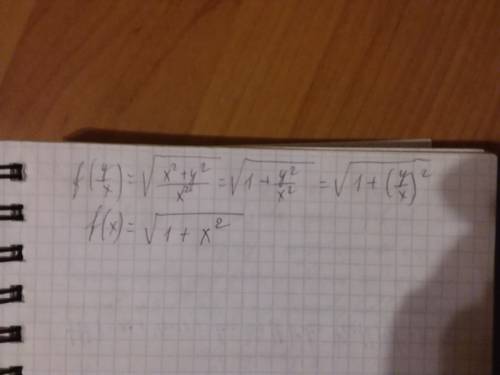 f(y/x) = √((x² + y²)/x²) = √(1 + y²/x²) = √(1 + (y/x)²)
f(x) = √(1 + x²)